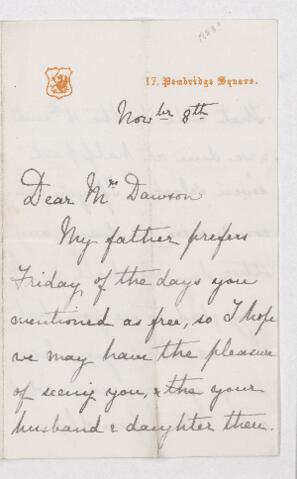 1883?
17, Pembridge Square.
Novbr 8th
Dear Mrs Dawson
My father prefers
Friday, of the days you
mentioned as free, so I hope
we may have the pleasure
of seeing you, & the your
husband & daughter then.